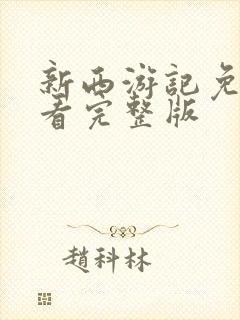 新西游記免
看完整版
趙科林